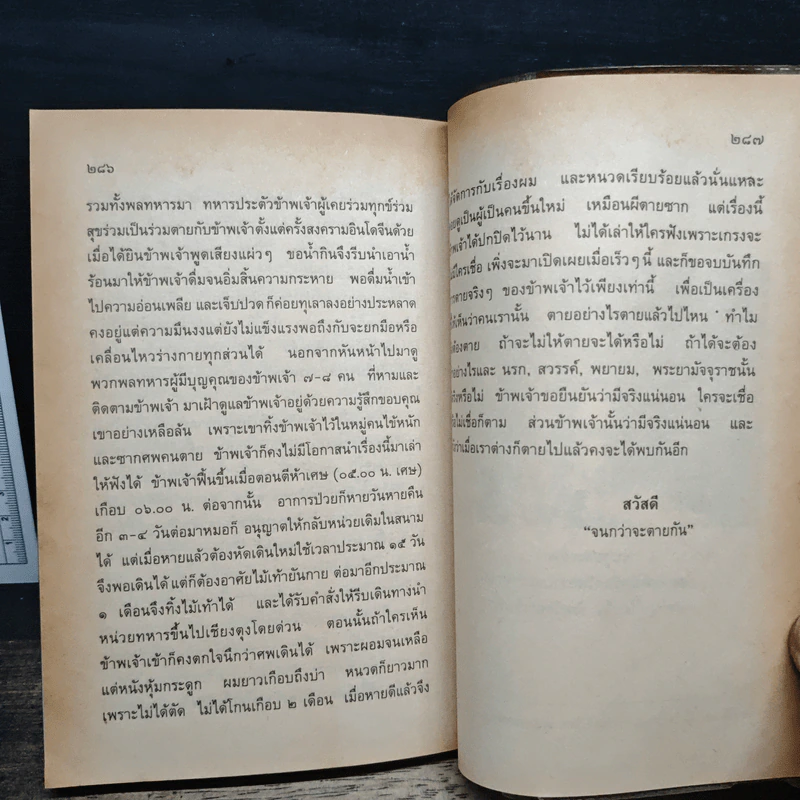 ๒๘๖
รวมทั้งพลทหารมา ทหารประตัวข้าพเจ้าผู้เคยร่วมทุกข์ร่วม
สุขร่วมเป็นร่วมตายกับข้าพเจ้าตั้งแต่ครั้งสงครามอินโดจีนด้วย
เมื่อได้ยินข้าพเจ้าพูดเสียงแผ่วๆ ขอน้ำกินจึงรีบนำเอาน้ำ
ร้อนมาให้ข้าพเจ้าดื่มจนอิ่มสิ้นความกระหาย พอดื่มน้ำเข้า
ไปความอ่อนเพลีย และเจ็บปวด ก็ค่อยทุเลาลงอย่างประหลาด
คงอยู่แต่ความมึนงงแต่ยังไม่แข็งแรงพอถึงกับจะยกมือหรือ
เคลื่อนไหวร่างกายทุกส่วนได้ นอกจากหันหน้าไปมาดู
พวกพลทหารผู้มีบุญคุณของข้าพเจ้า ๗-๘ คน ที่หามและ
ติดตามข้าพเจ้า มาเฝ้าดูแลข้าพเจ้าอยู่ด้วยความรู้สึกขอบคุณ
เขาอย่างเหลือล้น เพราะเขาทิ้งข้าพเจ้าไว้ในหมู่คนไข้หนัก
และซากศพคนตาย ข้าพเจ้าก็คงไม่มีโอกาสนำเรื่องนี้มาเล่า
ให้ฟังได้ ข้าพเจ้าฟื้นขึ้นเมื่อตอนตีห้าเศษ (๐๕.๐๐ น. เศษ)
เกือบ ๐๖.๐๐ น. ต่อจากนั้น อาการป่วยก็หายวันหายคืน
อีก ๓-๔ วันต่อมาหมอก็ อนุญาตให้กลับหน่วยเดิมในสนาม
ได้ แต่เมื่อหายแล้วต้องหัดเดินใหม่ใช้เวลาประมาณ ๑๕ วัน
จึงพอเดินได้ แต่ก็ต้องอาศัยไม้เท้ายันกาย ต่อมาอีกประมาณ
๑ เดือนจึงทิ้งไม้เท้าได้ และได้รับคำสั่งให้รีบเดินทางนำ
หน่วยทหารขึ้นไปเชียงตุงโดยด่วน ตอนนั้นถ้าใครเห็น
ข้าพเจ้าเข้าก็คงตกใจนึกว่าศพเดินได้ เพราะผอมจนเหลือ
แต่หนังหุ้มกระดูก ผมยาวเกือบถึงบ่า หนวดก็ยาวมาก
เพราะไม่ได้ตัด ไม่ได้โกนเกือบ ๒ เดือน เมื่อหายดีแล้วจึง
๒๘๗
จัดการกับเรื่องผม และหนวดเรียบร้อยแล้วนั่นแหละ
ดูเป็นผู้เป็นคนขึ้นใหม่ เหมือนผีตายซาก แต่เรื่องนี้
ได้ปกปิดไว้นาน ไม่ได้เล่าให้ใครฟังเพราะเกรงจะ
ใครเชื่อ เพิ่งจะมาเปิดเผยเมื่อเร็วๆ นี้ และก็ขอจบบันทึก
ตายจริงๆ ของข้าพเจ้าไว้เพียงเท่านี้ เพื่อเป็นเครื่อง
เห็นว่าคนเรานั้น ตายอย่างไรตายแล้วไปไหน ทำไม
ต้องตาย ถ้าจะไม่ให้ตายจะได้หรือไม่ ถ้าได้จะต้อง
อย่างไรและ นรก, สวรรค์, พยายม, พระยามัจจุราชนั้น
หรือไม่ ข้าพเจ้าขอยืนยันว่ามีจริงแน่นอน ใครจะเชื่อ
ไม่เชื่อก็ตาม ส่วนข้าพเจ้านั้นว่ามีจริงแน่นอน และ
ว่าเมื่อเราต่างก็ตายไปแล้วคงจะได้พบกันอีก
สวัสดี
“จนกว่าจะตายกัน”